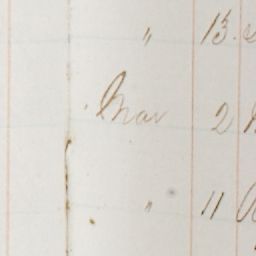 " 15
Mar 2
" 11